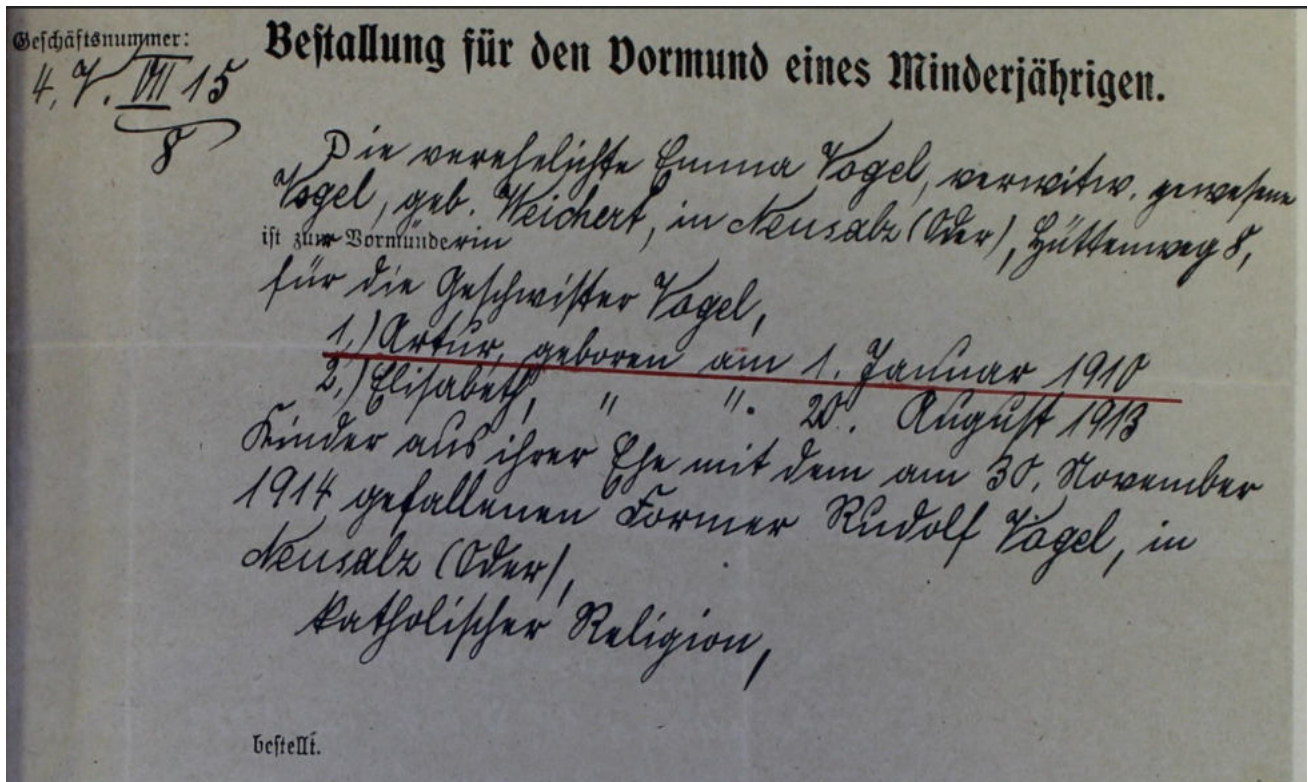 Geschäftsnummer:
4. V. VII 15
8
Bestallung für den Vormund eines Minderjährigen.
Die verehelichte Emma Vogel, verwitw. gewesene
Vogel, geb. Weichert, in Neusalz (Oder), Hüttenweg 8,
ist zur Vormünderin
für die Geschwister Vogel,
1.) Artur, geboren am 1. Januar 1910
2.) Elisabeth, " " 20. August 1913
Kinder aus ihrer Ehe mit dem am 30. November
1914 gefallenen Former Rudolf Vogel, in
Neusalz (Oder),
katholischer Religion,
bestellt.